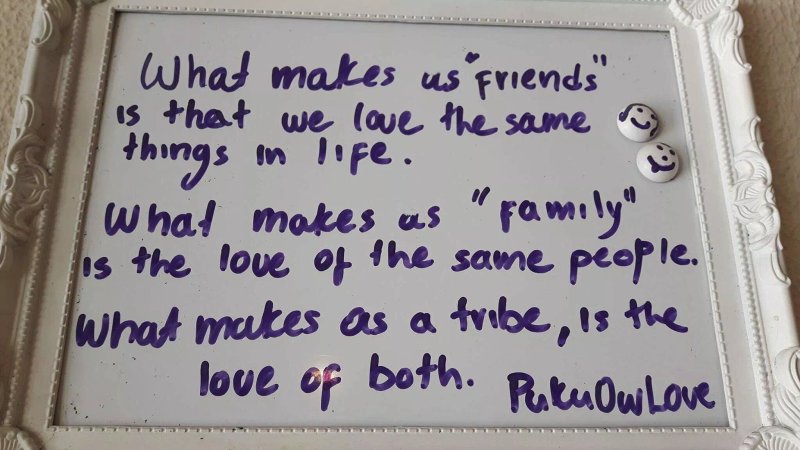 What makes us "friends"
is that we love the same
things in life.
What makes as "family"
is the love of the same people.
What makes as a tribe, is the
love of both.
PukuOwLove